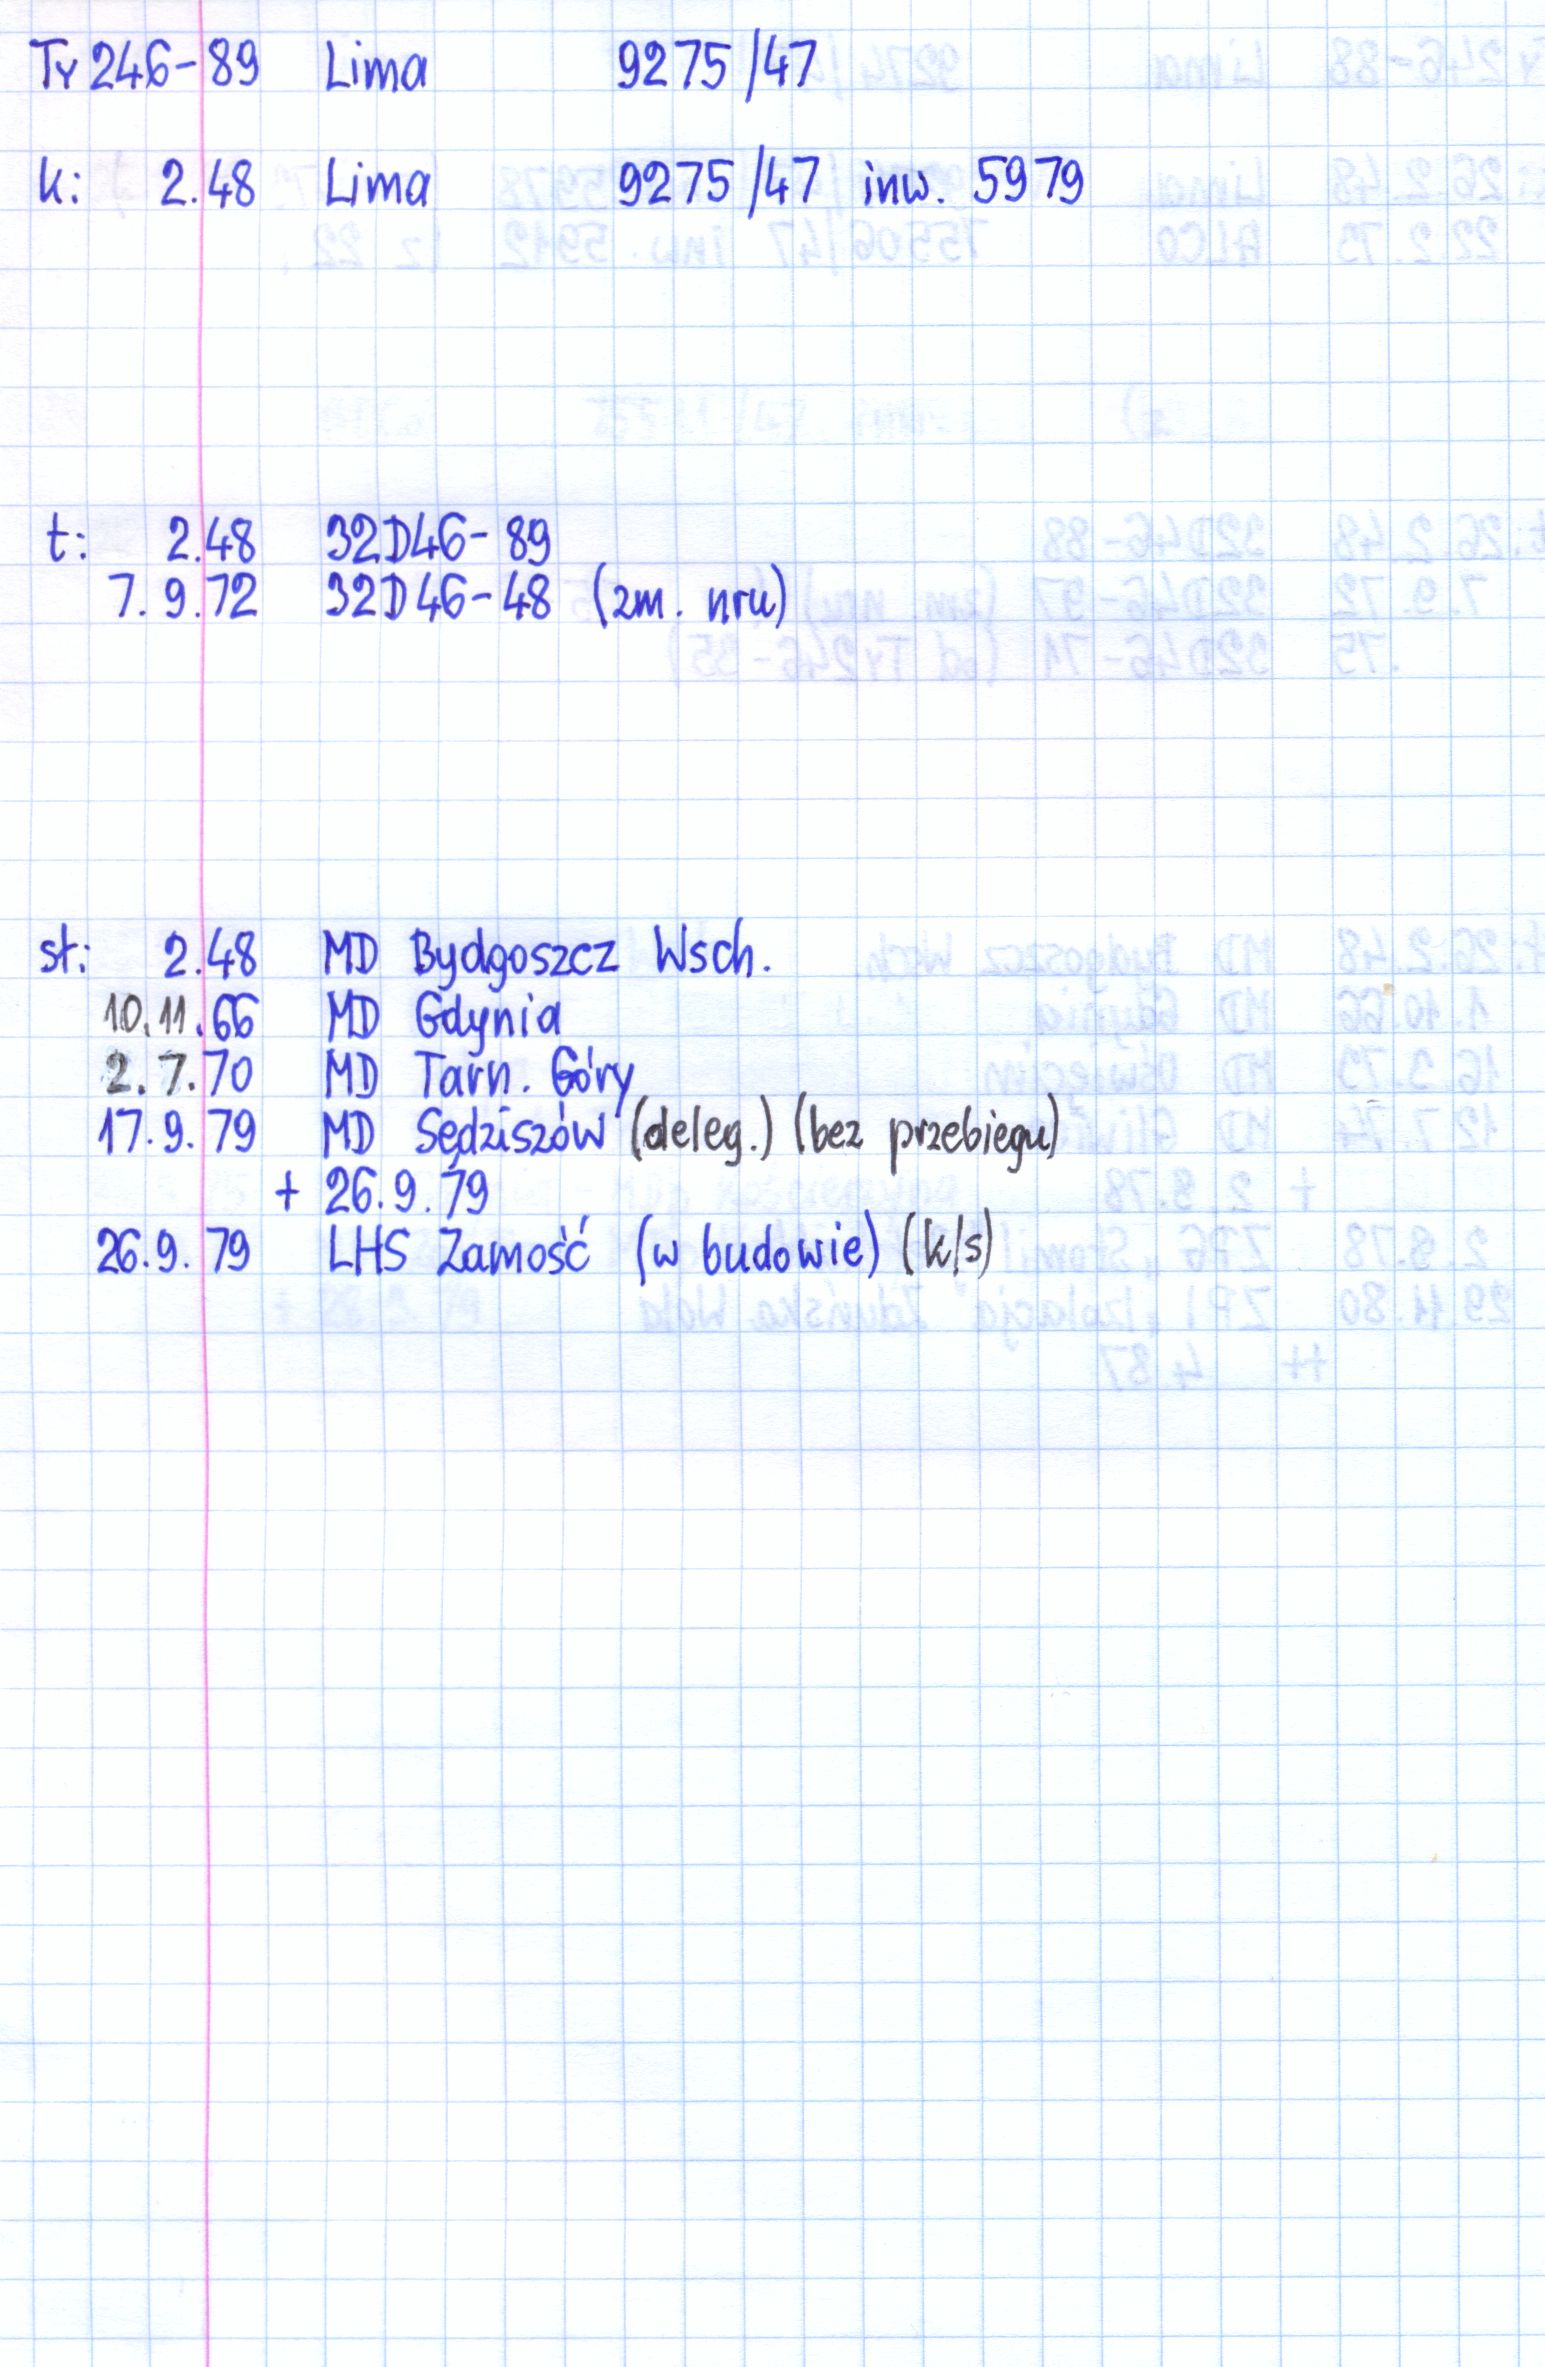 Ty246-89 Lima 9275/47
k: 2.48 Lima 9275/47 inw. 5979
t: 2.48 32D46-89
7.9.72 32D46-48 (zm. nru)
st: 2.48 MD Bydgoszcz Wsch.
10.11.66 MD Gdynia
2.7.70 MD Tarn. Góry
17.9.79 MD Sędziszów (deleg.) (bez przebiegu)
+ 26.9.79
26.9.79 LHS Zamość (w budowie) (k/s)